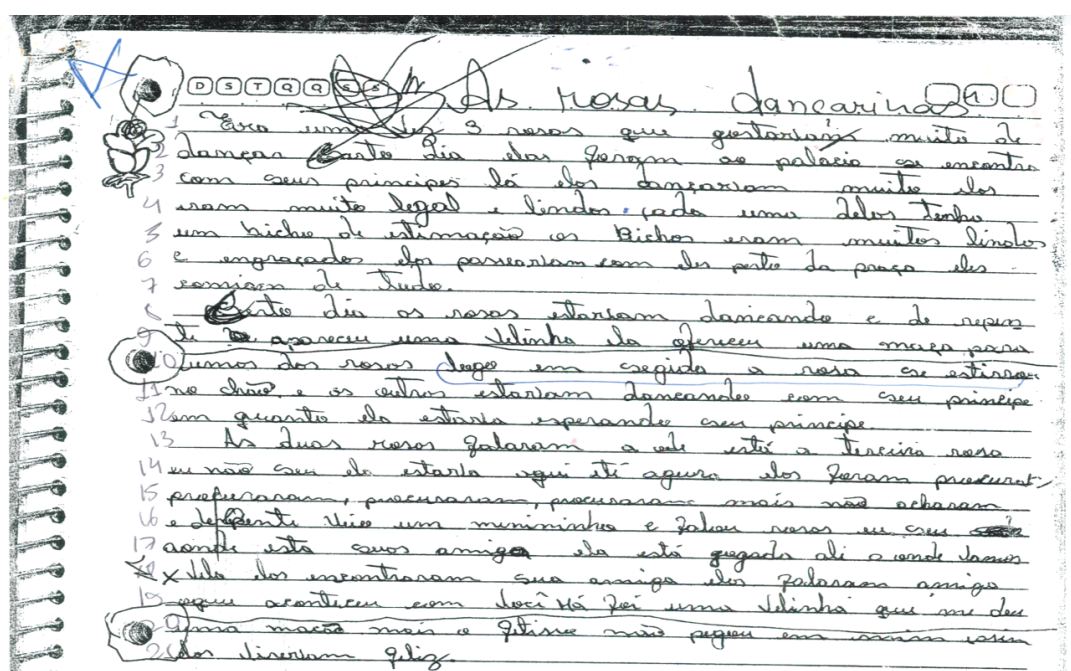 D S T Q Q S S
As rosas dancarinas
1 Era uma vez 3 rosas que gostariam muito de
2 dançar certo dia elas foram ao palácio se encontra
3 com seus principes lá elas dançariam muito elas
4 eram muito legal e lindas. cada uma delas tenha
5 um bicho de estimação os Bichos eram muitos lindos
6 e engraçados elas passeariam com eles perto da praça eles
7 comiam de tudo.
8 Certo dia as rosas estariam dancando e de repen
9 te apareceu uma velinha ela ofereceu uma maça para
10 umas das rosas logo em segida a rosa se estirro
11 no chão e as outras estariam dancando com seu principe
12 em quanto ela estaria esperando seu principe.
13 As duas rosas falaram a ode está a terceira rosa
14 eu não seu ela estarla aqui ité agura elas foram procurar
15 procuraram, procuraram, procuraram mais não acharam
16 e derepente veio um minininho e falou rosas eu seu
17 aonde esta suas amiga ela está gogada ali a onde vamos
18 x vela elas encontraram sua amiga elas falaram amiga
19 oque aconteceu com você Há foi uma velinha que me deu
20 uma macã mais o fetisso não pegou em mim
21 elas viveriam feliz.